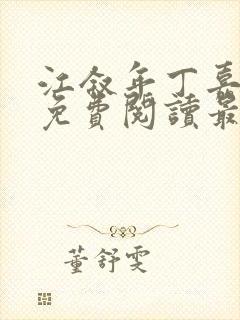 江叙年丁喜
免費閱讀最
董舒雯